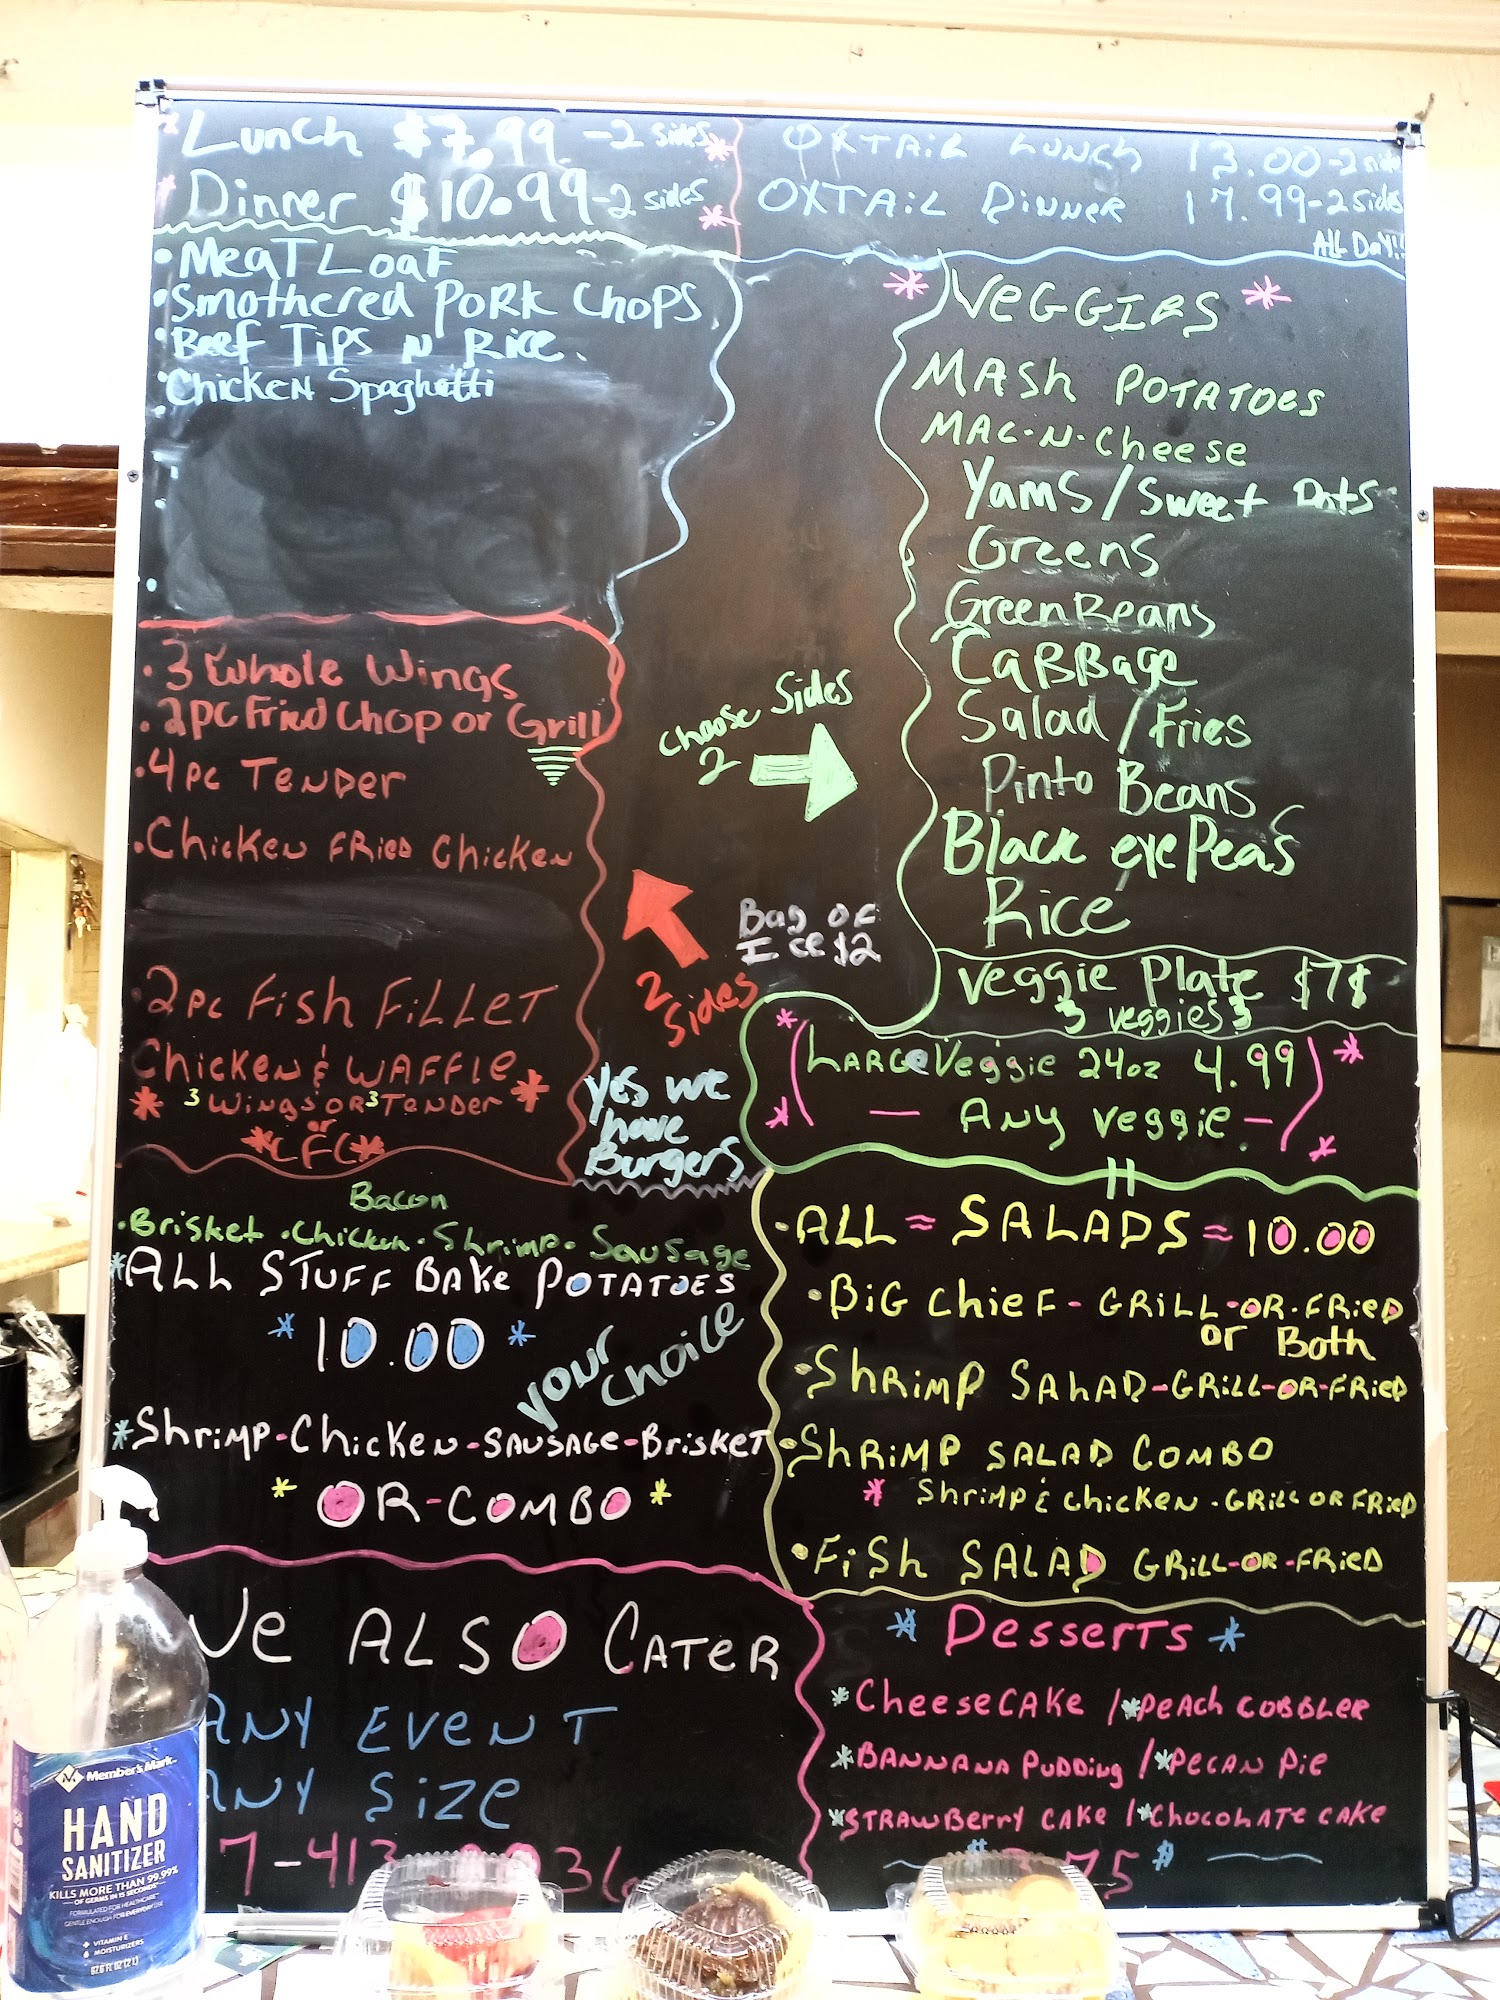 Lunch $7.99 -2 sides
Dinner $10.99 -2 sides
OXTAIL LUNCH 13.00-2 sides
OXTAIL DINNER 17.99-2 sides
ALL DAY!!
• MeaT Loaf
• Smothered Pork Chops
• Beef Tips N Rice.
• Chicken Spaghetti
* VEGGIES *
MASh POTATOES
MAC-N-Cheese
Yams/Sweet Pots
Greens
Green Beans
CaBBage
Salad/Fries
Pinto Beans
Black eye Peas
Rice
Veggie Plate $7$
3 veggies 3
Choose Sides
2
• 3 Whole Wings
• 2pc Fried Chop or Grill
• 4 pc Tender
• Chicken Fried Chicken
• 2pc Fish Fillet
Chicken & Waffle
* 3 Wings or 3 Tender *
or
*CFC*
2 Sides
Bag of
Ice $2
Yes we
have
Burgers
* (Large Veggie 24oz 4.99) *
* — Any veggie — *
Bacon
• Brisket • Chicken • Shrimp • Sausage
*ALL STUFF BAKe POTATOES
* 10.00 *
your choice
*Shrimp-Chicken-Sausage-Brisket
* OR-COMBO *
• ALL = SALADS = 10.00
• BiG Chief - GRILL-OR-FRieD
or Both
• ShRiMP SALAD-GRILL-OR-FRieD
• ShRiMP SALAD COMBO
* ShRiMP & ChickEN - GRILL OR FRieD
• FiSh SALAD GRiLL-OR-FRiED
We ALSO CATER
ANY EVENT
ANY SiZe
* Desserts *
*CheeseCAKe / *Peach CobbLeR
*BANNANA PuDDiNg / *Pecan Pie
*STRAWBerry CAKe / *ChocoLATe CAKe
Member's Mark
HAND
SANITIZER
KILLS MORE THAN 99.99%
OF GERMS IN 15 SECONDS
FORMULATED FOR HEALTHCARE
GENTLE ENOUGH FOR EVERYDAY USE
VITAMIN E
MOISTURIZERS
67.6 FL OZ (2 L)